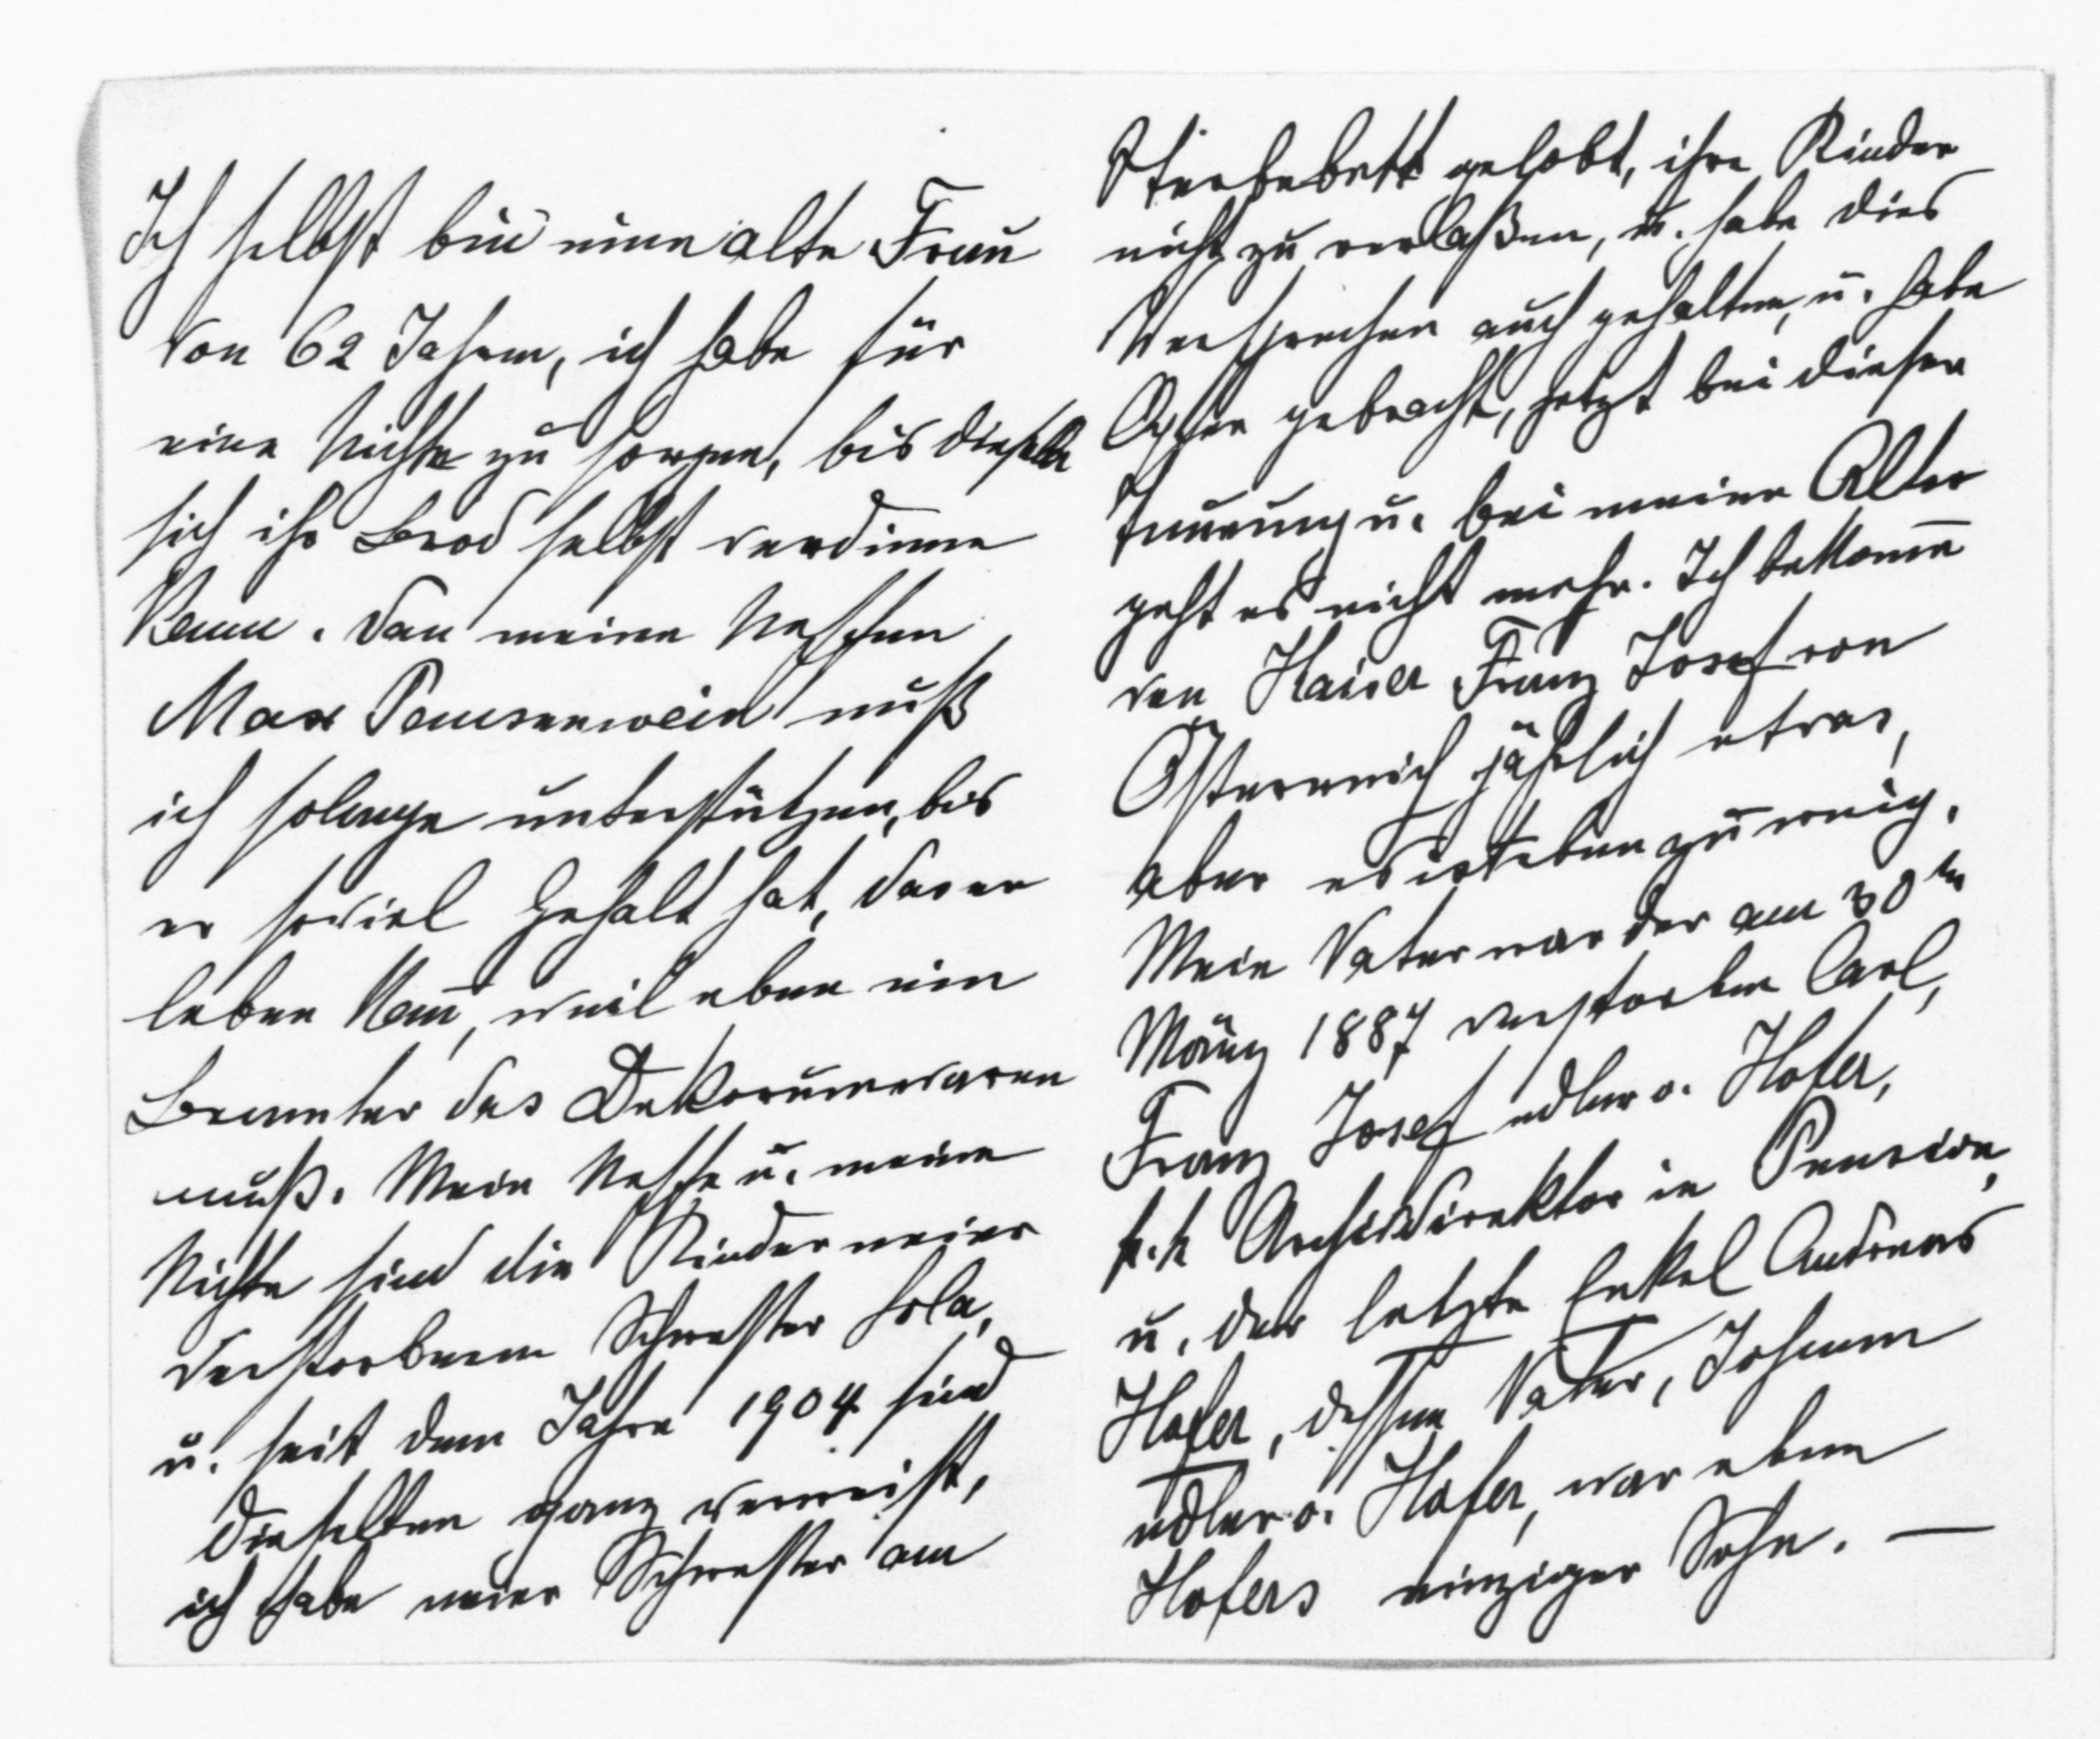 Ich selbst bin eine alte Frau
von 62 Jahren, ich habe für
eine Nichte zu sorgen, bis dieselbe
sich ihr Brod selbst verdienen
kann. Dan meinen Neffen
Max Pauserwein muß
ich solange unterstützen, bis
er soviel Gehalt hat, das er
leben kan̅, weil eben ein
Beamter das Dekorum waren
muß. Mein Neffe u. meine
Nichte sind die Kinder meiner
verstorbenen Schwester Lola,
u. seit dem Jahre 1904 sind
dieselben ganz verweist,
ich habe meiner Schwester am
Sterbebett gelobt, ihre Kinder
nicht zu verlaßen, u. habe dies
Versprechen auch gehalten, u. habe
Opfer gebracht, jetzt bei dieser
Teuerung u. bei meinem Alter
geht es nicht mehr. Ich bekom̅e
von Kaiser Franz Josef von
Österreich jährlich etwas,
aber es ist eben zu wenig.
Mein Vater war der am 30ten
März 1887 verstorbene Carl,
Franz Josef edler v. Hofer,
k. k Archivdirektor in Pension,
u. der letzte Enkel Andreas
Hofer, dessen Vater, Johann
edler v. Hofer, war eben
Hofers einziger Sohn. —